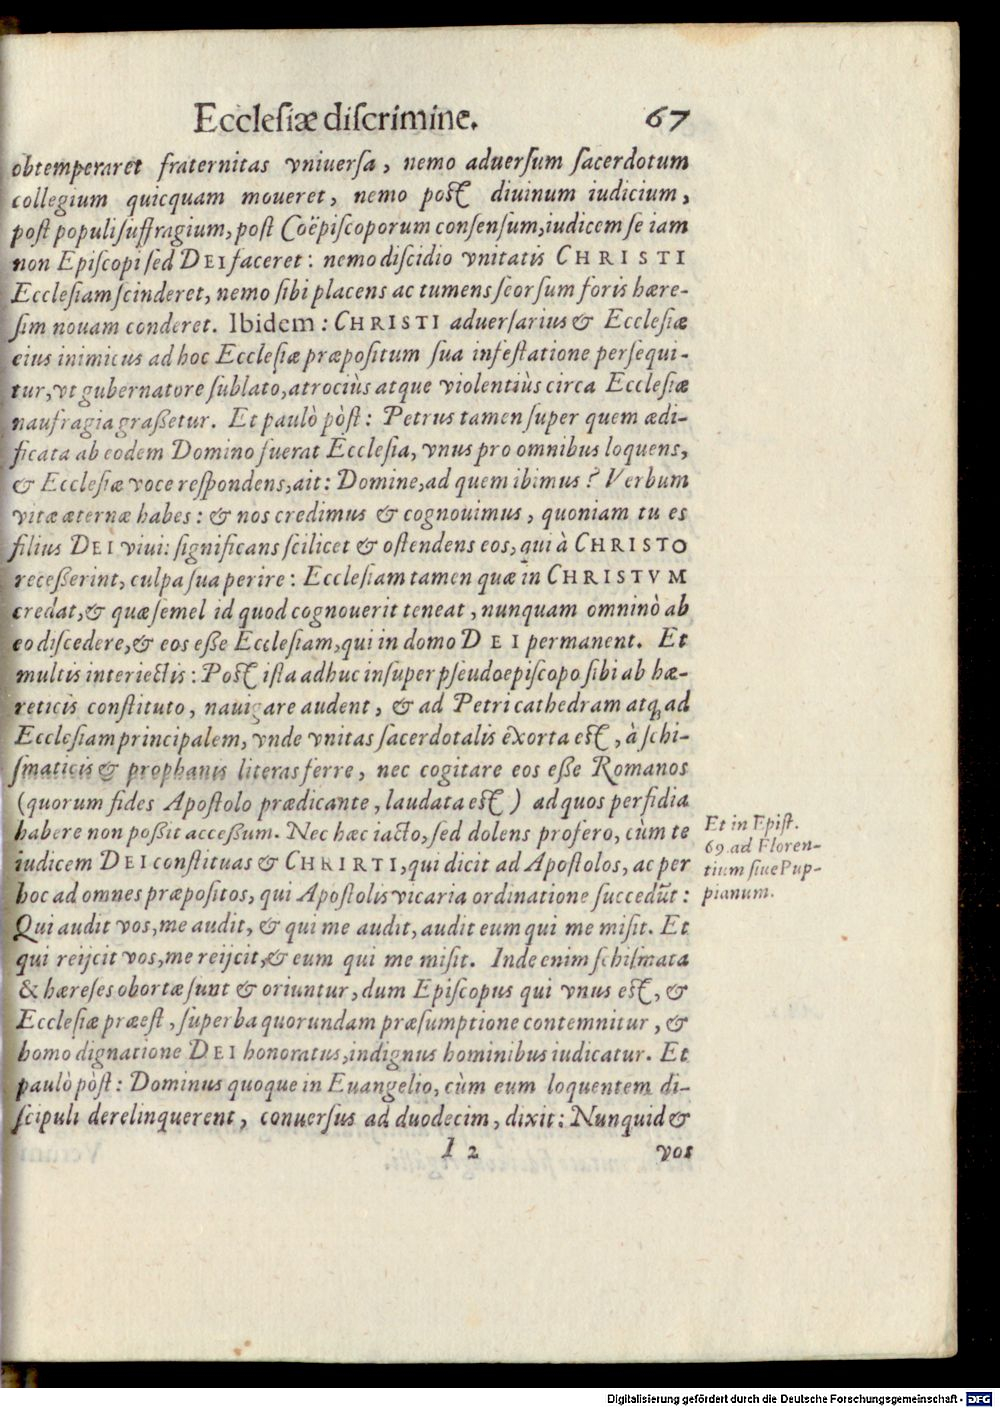 Ecclesiæ discrimine. 67
obtemperaret fraternitas vniuersa, nemo aduersum sacerdotum
collegium quicquam moueret, nemo post diuinum iudicium,
post populi suffragium, post Coëpiscoporum consensum, iudicem se iam
non Episcopi sed DEI faceret: nemo discidio vnitatis CHRISTI
Ecclesiam scinderet, nemo sibi placens ac tumens seorsum foris hære-
sim nouam conderet. Ibidem: CHRISTI aduersarius & Ecclesiæ
eius inimicus ad hoc Ecclesiæ præpositum sua infestatione persequi-
tur, vt gubernatore sublato, atrociùs atque violentiùs circa Ecclesiæ
naufragia graßetur. Et paulò pòst: Petrus tamen super quem ædi-
ficata ab eodem Domino fuerat Ecclesia, vnus pro omnibus loquens,
& Ecclesiæ voce respondens, ait: Domine, ad quem ibimus? Verbum
vitæ æternæ habes: & nos credimus & cognouimus, quoniam tu es
filius DEI viui: significans scilicet & ostendens eos, qui à CHRISTO
receßerint, culpa sua perire: Ecclesiam tamen quæ in CHRISTVM
credat, & quæ semel id quod cognouerit teneat, nunquam omninò ab
eo discedere, & eos eße Ecclesiam, qui in domo DEI permanent. Et
multis interiectis: Post ista adhuc insuper pseudoepiscopo sibi ab hæ-
reticis constituto, nauigare audent, & ad Petri cathedram atq; ad
Ecclesiam principalem, vnde vnitas sacerdotalis exorta est, à schi-
smaticis & prophanis literas ferre, nec cogitare eos eße Romanos
(quorum fides Apostolo prædicante, laudata est) ad quos perfidia
habere non poßit acceßum. Nec hæc iacto, sed dolens profero, cùm te
iudicem DEI constituas & CHRIRTI, qui dicit ad Apostolos, ac per
hoc ad omnes præpositos, qui Apostolis vicaria ordinatione succedūt:
Qui audit vos, me audit, & qui me audit, audit eum qui me misit. Et
qui reijcit vos, me reijcit, & eum qui me misit. Inde enim schismata
& hæreses obortæ sunt & oriuntur, dum Episcopus qui vnus est, &
Ecclesiæ præest, superba quorundam præsumptione contemnitur, &
homo dignatione DEI honoratus, indignus hominibus iudicatur. Et
paulò pòst: Dominus quoque in Euangelio, cùm eum loquentem di-
scipuli derelinquerent, conuersus ad duodecim, dixit: Nunquid &
I 2 vos
Et in Epist.
69. ad Floren-
tium siue Pup-
pianum.
Digitalisierung gefördert durch die Deutsche Forschungsgemeinschaft - DFG